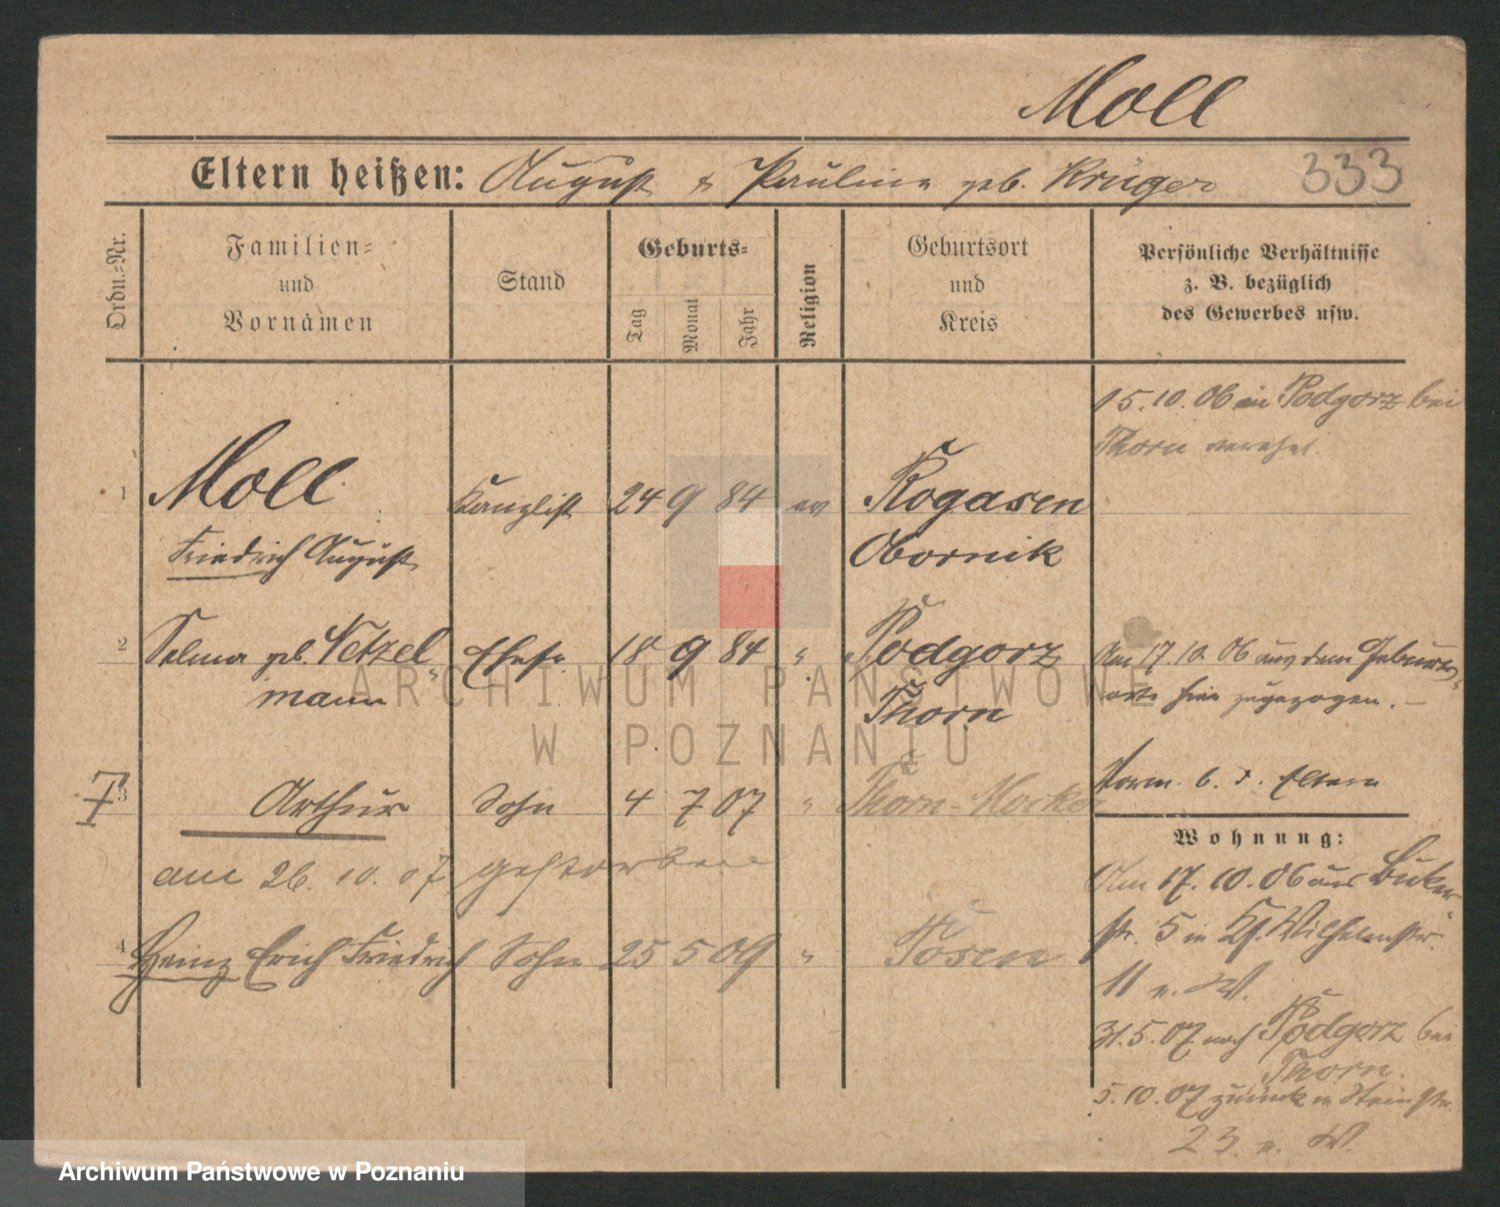 Moll
Eltern heißen: August & Pauline geb. Krüger 333
Ordn.=Nr.
Familien=
und
Vornamen
Stand
Geburts=
Tag
Monat
Jahr
Religion
Geburtsort
und
Kreis
Persönliche Verhältnisse
z. B. bezüglich
des Gewerbes usw.
15.10.06 in Podgorz bei
Thorn verehel.
1 Moll Kanzlist 24 9 84 ev Rogasen
Friedrich August Obornik
2 Selma geb. Netzel- Ehefr. 18 9 84 " Podgorz
mann Thorn
Am 17.10.06 aus dem Geburts-
orte hier zugezogen. –
3 Arthur Sohn 4 7 07 " Thorn-Mocker
Vorm. b. d. Eltern
am 26.10.07 gestorben
4 Heinz Erich Friedrich Sohn 25 5 09 " Posen
Wohnung:
Am 17.10.06 aus Buker-
str. 5 in Wilhelmstr.
11 n. W.
31.5.07 nach Podgorz bei
Thorn.
5.10.07 zurück n Steinstr.
23 n. W.
ARCHIWUM PAŃSTWOWE
W POZNANIU
Archiwum Państwowe w Poznaniu